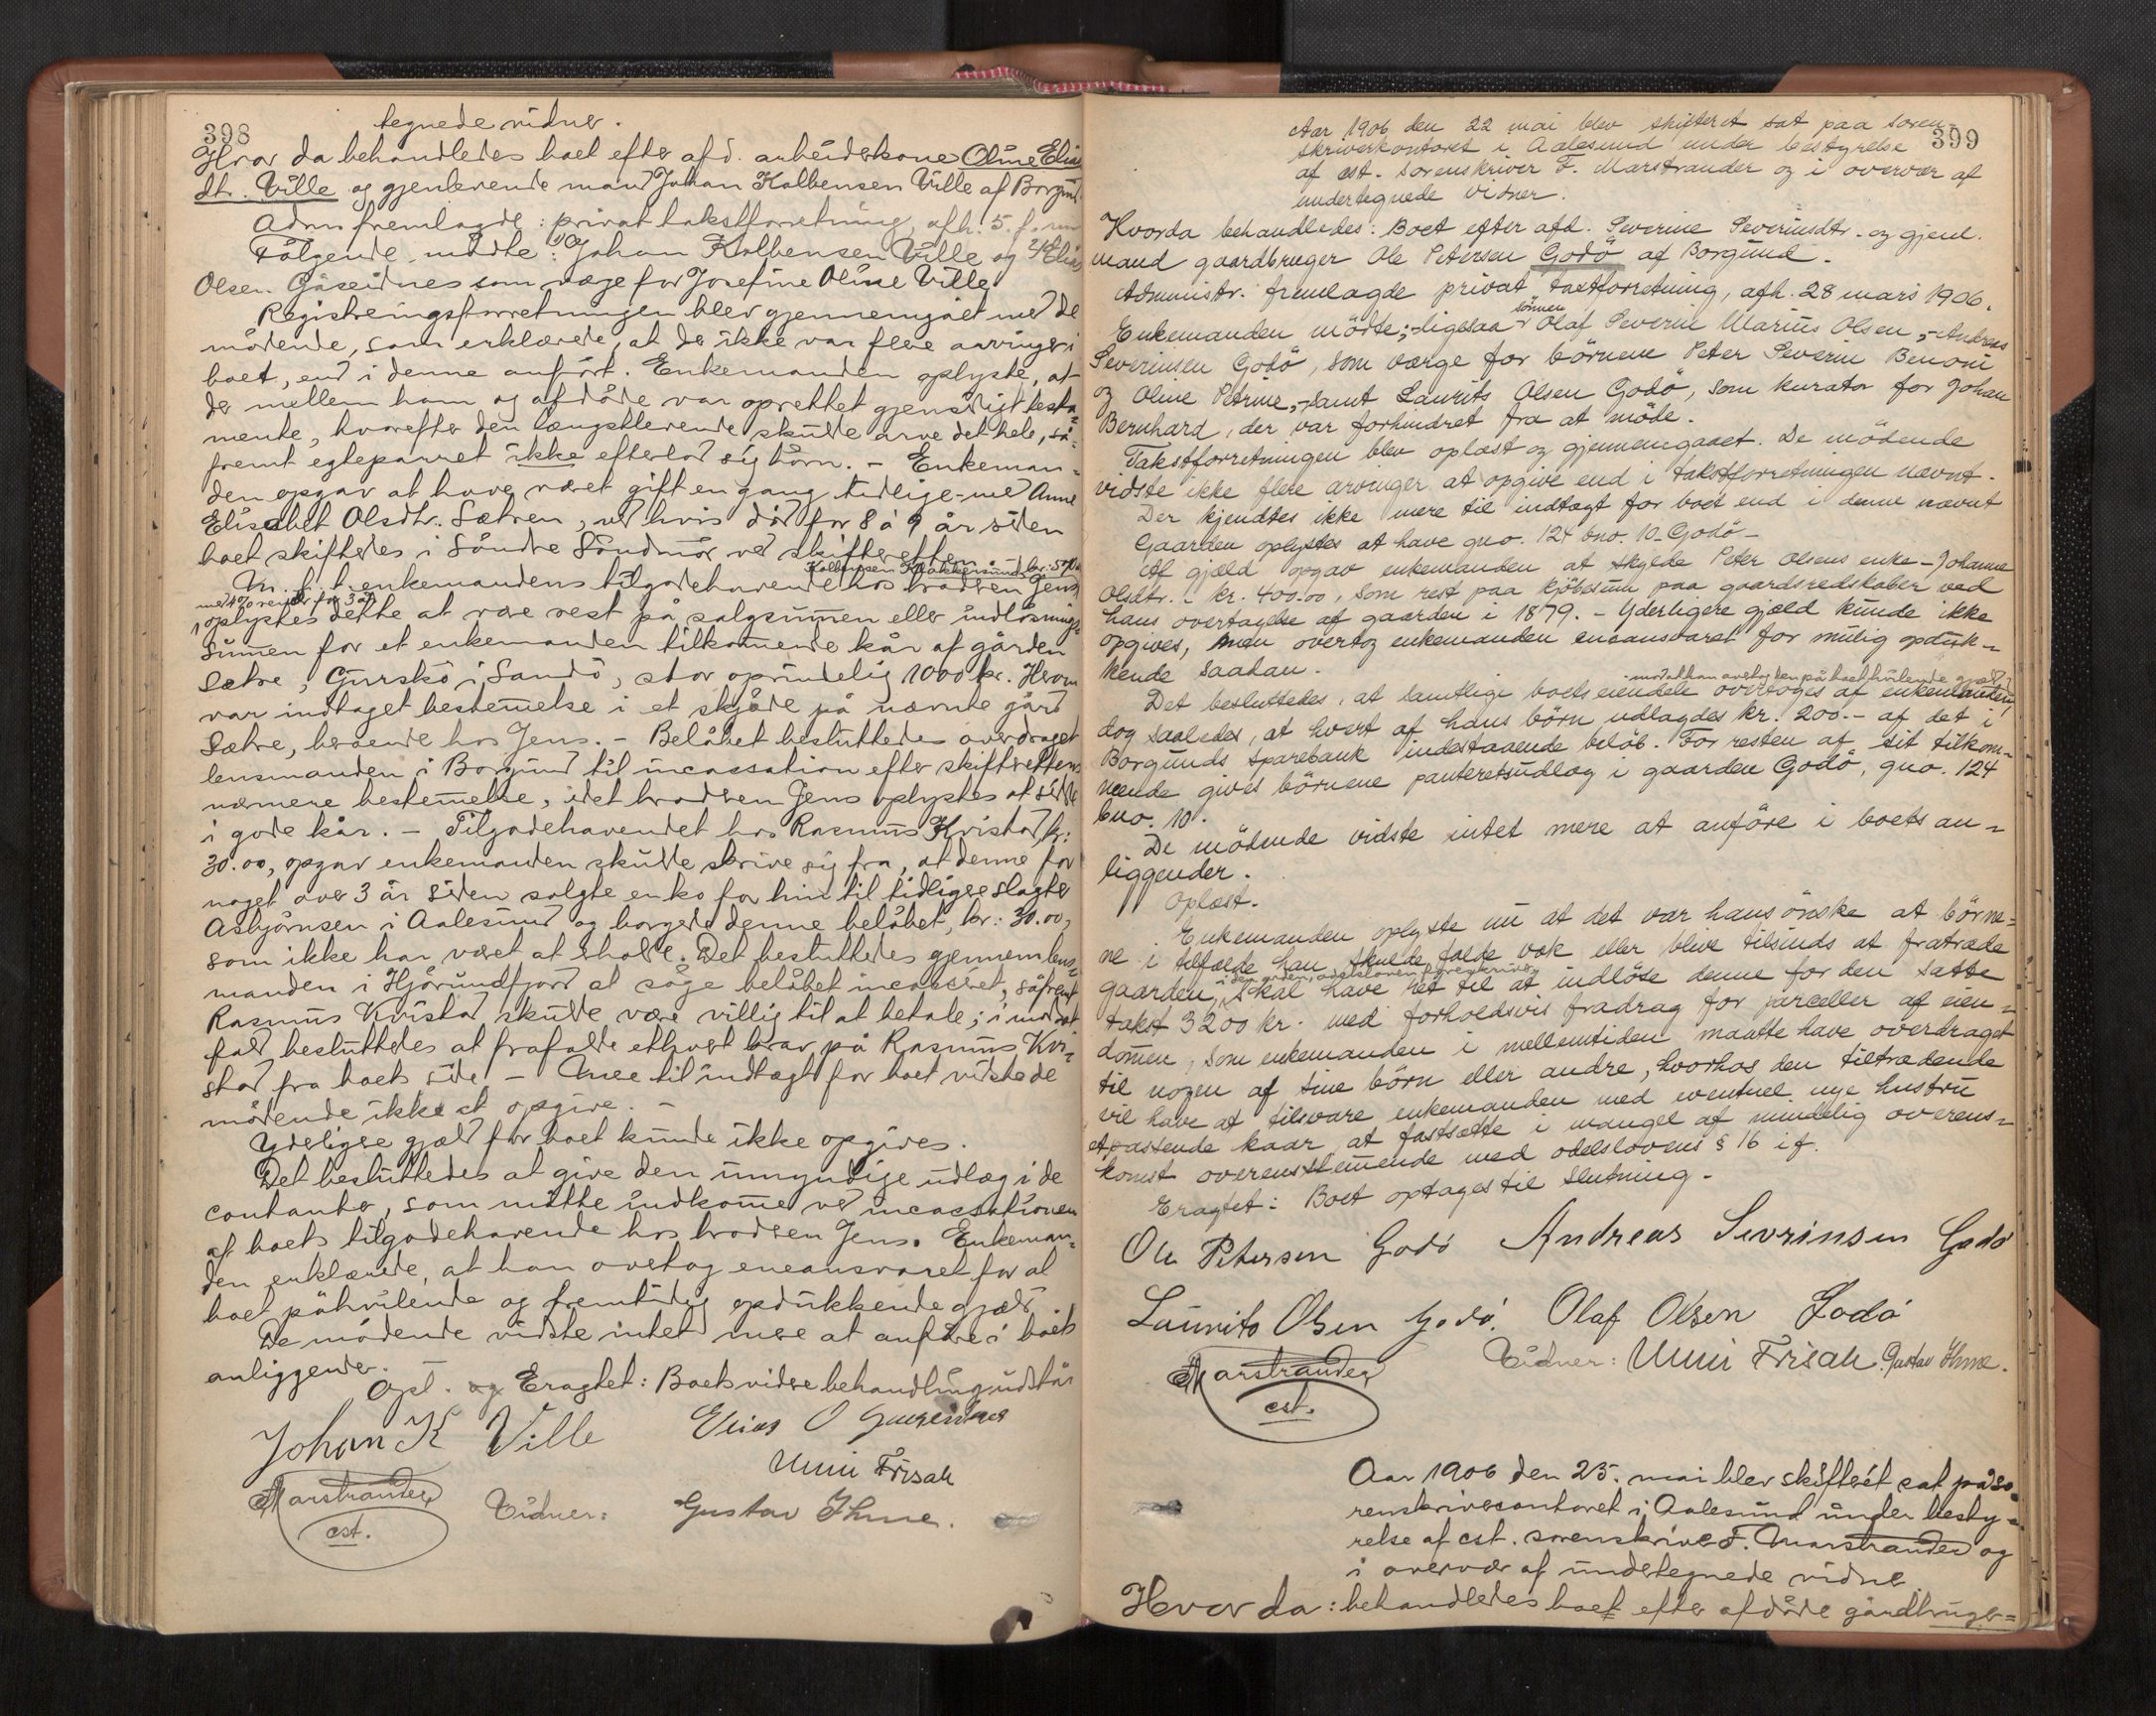 398
tegnede vidner.
Hvor da behandledes boet efter afd. arbeiderkone Oline Elias
dtr. Ville og gjenlevende mand Johan Kolbensen Ville af Borgund.
Adm. fremlagde: privat takstforretning, afh. 5. f. m.
Følgende mødte: 1) Johan Kolbensen Ville og 2) Elias
Olsen Gåseidnes som værge for Josefine Oline Ville.
Registreringsforretningen blev gjennemgået med de
mødende, som erklærede, at der ikke var flere arvinger i
boet, end i denne anført. Enkemanden oplyste, at
der mellem ham og afdøde var oprettet gjensidigt testa-
mente, hvorefter den længstlevende skulde arve det hele, så-
fremt egteparret ikke efterlod sig børn. - Enkeman-
den opgav at have været gift en gang tidligere med Anne
Elisabet Olsdtr. Sætren, ved hvis død for 8 à 9 år siden
boet skiftedes i Søndre Søndmør ved skifteretten.
M. h. t. enkemandens tilgodehavende hos broderen Jens
Kolbensen
med 4% renter for 3 år
oplystes dette at være rest på salgsummen eller indløsnings-
summen for et enkemanden tilkommende kår af gården
Sætre, Gurskø i Sandø, stor oprindelig 1000 kr. Herom
var indtaget bestemmelse i et skjøde på nævnte gård
Sætre, beroende hos Jens. - Beløbet besluttedes overdraget
lensmanden i Borgund til incassation efter skifterettens
nærmere bestemmelse, idet broderen Jens oplystes at sidde
i gode kår. - Tilgodehavendet hos Rasmus Kvistad, kr:
30.00, opgav enkemanden skulde skrive sig fra, at denne for
noget over 3 år siden solgte en ko for ham til tidligere slagter
Asbjørnsen i Aalesund og borgede denne beløbet, kr: 30.00,
som ikke har været at erholde. Det besluttedes gjennem lens-
manden i Hjørundfjord at søge beløbet incasseret, såfremt
Rasmus Kvistad skulde være villig til at betale; i modsat
fald besluttedes at frafalde ethvert krav på Rasmus Kvi-
stad fra boets side - Mere til indtægt for boet vidste de
mødende ikke at opgive. -
Yderligere gjæld for boet kunde ikke opgives.
Det besluttedes at give den umyndige udlæg i de
contanter, som måtte indkomme ved incassationen
af boets tilgodehavende hos broderen Jens. Enkeman-
den erklærede, at han overtog eneansvaret for al
boet påhvilende og fremtidig opdukkende gjæld.
De mødende vidste intet mere at anføre i boets
anliggender.
Opl. og Eragtet: Boets videre behandling udstår
Johan K Ville Elias O Gaaseidnes
Unni Frisak
Marstrander Vidner: Gustav Ihme.
cst.
399
Aar 1906 den 22 mai blev skifteret sat paa soren-
skriverkontoret i Aalesund under bestyrelse
af cst. sorenskriver F. Marstrander og i overvær af
undertegnede vidner.
Hvorda behandledes: Boet efter afd. Severine Severinsdtr. og gjenl.
mand gaardbruger Ole Petersen Godö af Borgund.
Administr. fremlagde privat taxtforretning, afh. 28 mars 1906.
sönner
Enkemanden mödte; - ligesaa Olaf Severin Marius Olsen, - Andreas
Severinsen Godö, som værge for börnene Peter Severin Benoni
og Oline Petrine, - samt Laurits Olsen Godö, som kurator for Johan
Bernhard, der var forhindret fra at möde.
Takstforretningen blev oplæst og gjennemgaaet. De mödende
vidste ikke flere arvinger at opgive end i takstforretningen nævnt.
Der kjendtes ikke mere til indtægt for boet end i denne nævnt
Gaarden oplystes at have gno. 124 bno. 10. Godö -
Af gjæld opgav enkemanden at skylde Peter Olsens enke - Johanne
Olsdtr. - kr. 400.00, som rest paa kjöbesum paa gaardsredskaber ved
hans overtagelse af gaarden i 1879. - Yderligere gjæld kunde ikke
opgives, men overtog enkemanden eneansvaret for mulig opduk-
kende saadan.
- mod at han overtog den på boet hvilende gjæld,
Det besluttedes, at samtlige boets eiendele overtoges af enkemanden,
dog saaledes, at hvert af hans börn udlagdes kr. 200.- af det i
Borgunds Sparebank indestaaende belöb. For resten af sit tilkom-
mende gives börnene panteretsudlæg i gaarden Godö, gno. 124
bno. 10.
De mödende vidste intet mere at anföre i boets an-
liggender.
Oplæst.
Enkemanden oplyste nu at det var hans önske at börne-
ne i tilfælde han skulde falde væk eller blive tilsinds at fratræde
i den orden, odelsloven foreskriver
gaarden, skal have ret til at indlöse denne for den satte
takst 3200 kr. med forholdsvis fradrag for parceller af eien-
dommen, som enkemanden i mellemtiden maatte have overdraget
til nogen af sine börn eller andre, hvorhos den tiltrædende
vil have at tilsvare enkemanden med eventuel nye hustru
et passende kaar, at fastsætte i mangel af mindelig overens-
komst overensstemmende med odelslovens § 16 i.f.
Eragtet: Boet optages til slutning -
Ole Petersen Godö Andreas Sevrinsen Godö
Laurits Olsen Godö. Olaf Olsen Godö
Marstrander Vidner: Unni Frisak. Gustav Ihme.
cst.
Aar 1906 den 25. mai blev skifteret sat på so-
renskrivercontoret i Aalesund under besty-
relse af cst. sorenskriver F. Marstrander og
i overvær af undertegnede vidner
Hvor da: behandledes boet efter afdøde gårdbruger-